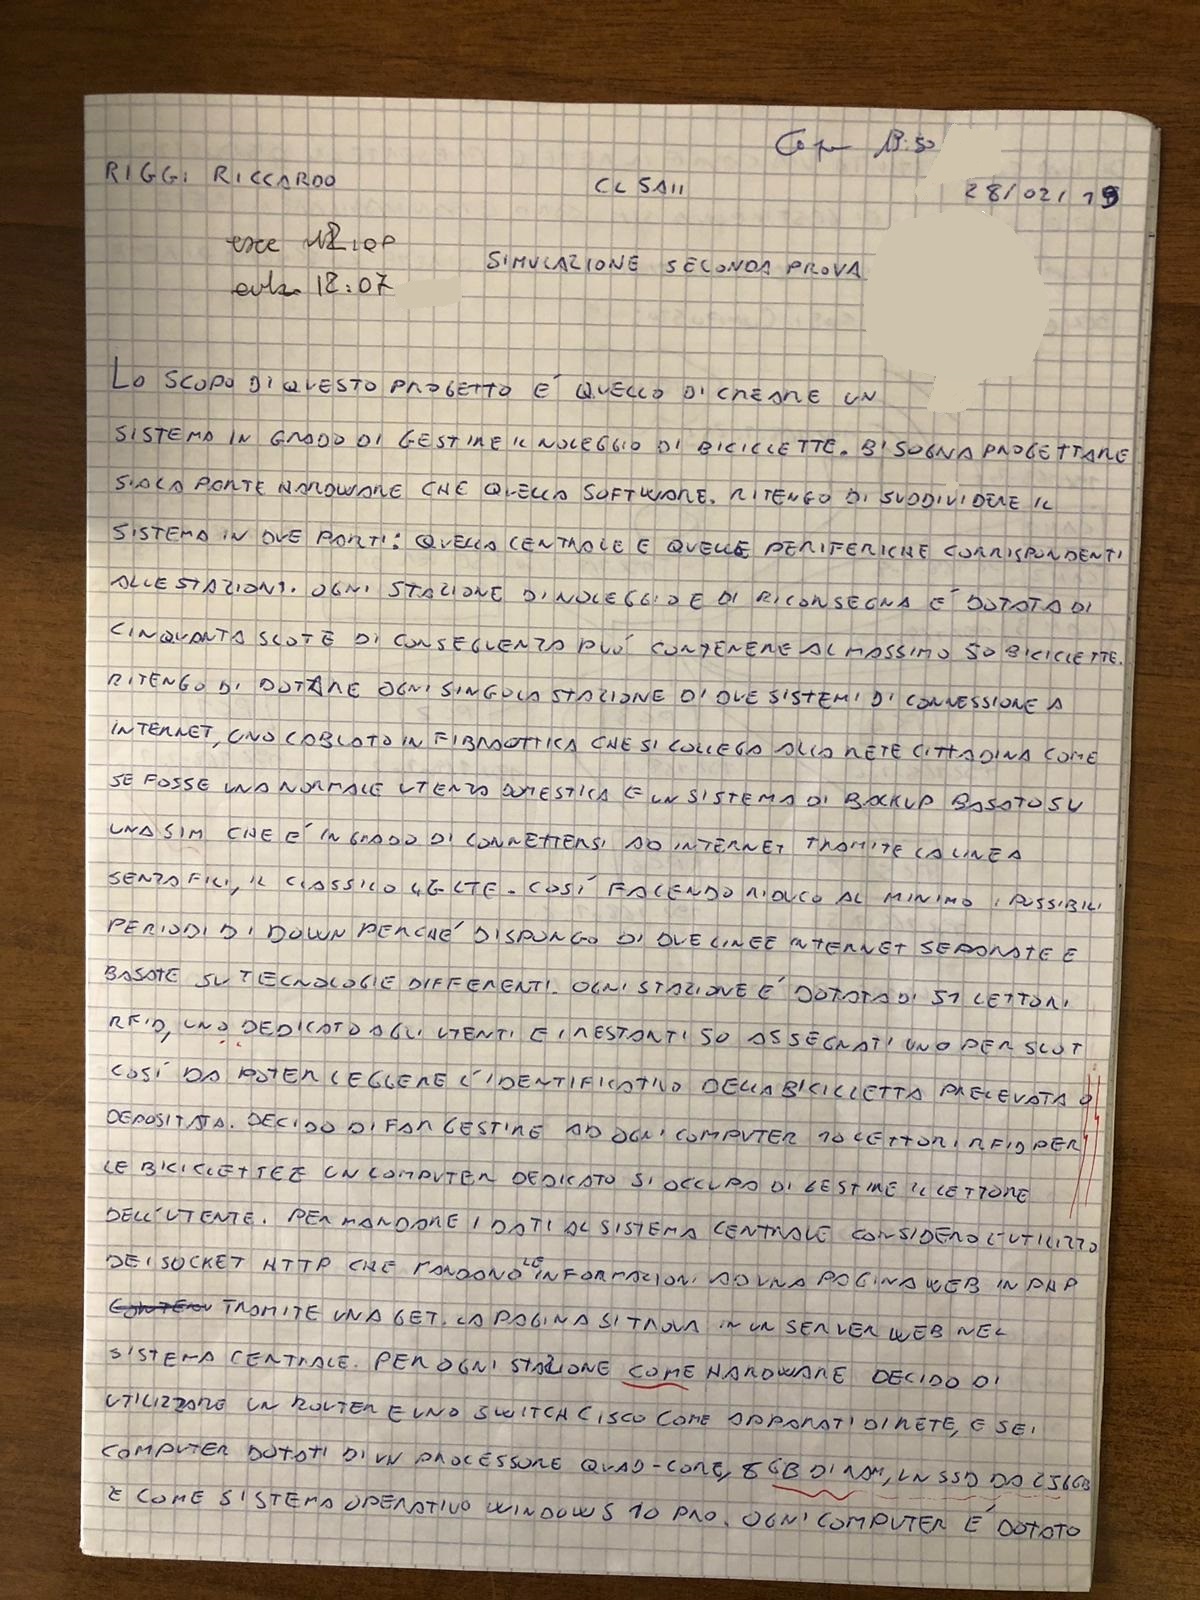 13:50
RIGGI RICCARDO CL 5AII 28/02/19
esce 12:00
SIMULAZIONE SECONDA PROVA
12:07
LO SCOPO DI QUESTO PROGETTO E' QUELLO DI CREARE UN
SISTEMA IN GRADO DI GESTIRE IL NOLEGGIO DI BICICLETTE. BISOGNA PROGETTARE
SIA LA PARTE HARDWARE CHE QUELLA SOFTWARE. RITENGO DI SUDDIVIDERE IL
SISTEMA IN DUE PARTI: QUELLA CENTRALE E QUELLE PERIFERICHE CORRISPONDENTI
ALLE STAZIONI. OGNI STAZIONE DI NOLEGGIO E DI RICONSEGNA E' DOTATA DI
CINQUANTA SLOT E DI CONSEGUENZA PUO' CONTENERE AL MASSIMO 50 BICICLETTE.
RITENGO DI DOTARE OGNI SINGOLA STAZIONE DI DUE SISTEMI DI CONNESSIONE A
INTERNET, UNO CABLATO IN FIBRA OTTICA CHE SI COLLEGA ALLA RETE CITTADINA COME
SE FOSSE UNA NORMALE UTENZA DOMESTICA E UN SISTEMA DI BACKUP BASATO SU
UNA SIM CHE E' IN GRADO DI CONNETTERSI AD INTERNET TRAMITE LA LINEA
SENZA FILI, IL CLASSICO 4G LTE. COSI' FACENDO RIDUCO AL MINIMO I POSSIBILI
PERIODI DI DOWN PERCHE' DISPONGO DI DUE LINEE INTERNET SEPARATE E
BASATE SU TECNOLOGIE DIFFERENTI. OGNI STAZIONE E' DOTATA DI 51 LETTORI
RFID, UNO DEDICATO AGLI UTENTI E I RESTANTI 50 ASSEGNATI UNO PER SLOT
COSI' DA POTER LEGGERE L'IDENTIFICATIVO DELLA BICICLETTA PRELEVATA O
DEPOSITATA. DECIDO DI FAR GESTIRE AD OGNI COMPUTER 10 LETTORI RFID PER
LE BICICLETTE E UN COMPUTER DEDICATO SI OCCUPA DI GESTIRE IL LETTORE
DELL'UTENTE. PER MANDARE I DATI AL SISTEMA CENTRALE CONSIDERO L'UTILIZZO
DEI SOCKET HTTP CHE MANDANO LE INFORMAZIONI AD UNA PAGINA WEB IN PHP
TRAMITE UNA GET. LA PAGINA SI TROVA IN UN SERVER WEB NEL
SISTEMA CENTRALE. PER OGNI STAZIONE COME HARDWARE DECIDO DI
UTILIZZARE UN ROUTER E UNO SWITCH CISCO COME APPARATI DI RETE, E SEI
COMPUTER DOTATI DI UN PROCESSORE QUAD-CORE, 8 GB DI RAM, UN SSD DA 256GB
E COME SISTEMA OPERATIVO WINDOWS 10 PRO. OGNI COMPUTER E' DOTATO